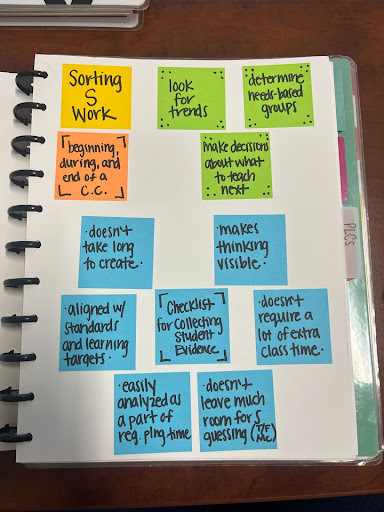 Sorting
S
Work
look
for
trends
determine
needs-based
groups
beginning,
during, and
end of a
C.C.
make decisions
about what
to teach
next
·doesn't
take long
to create·
·makes
thinking
visible·
·aligned w/
standards
and learning
targets·
Checklist
for Collecting
Student
Evidence
·doesn't
require a
lot of extra
class time·
·easily
analyzed as
a part of
reg. plng time
·doesn't
leave much
room for S
guessing (T/F
MC)
PLCs